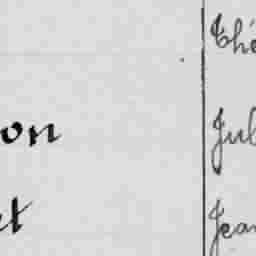 Thé
on Jul
et Jean